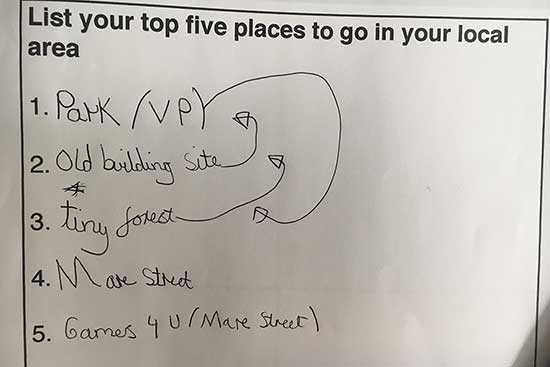 List your top five places to go in your local
area
1. Park (VP)
2. Old building site
3. tiny forest
4. Mare Street
5. Games 4 U (Mare Street)